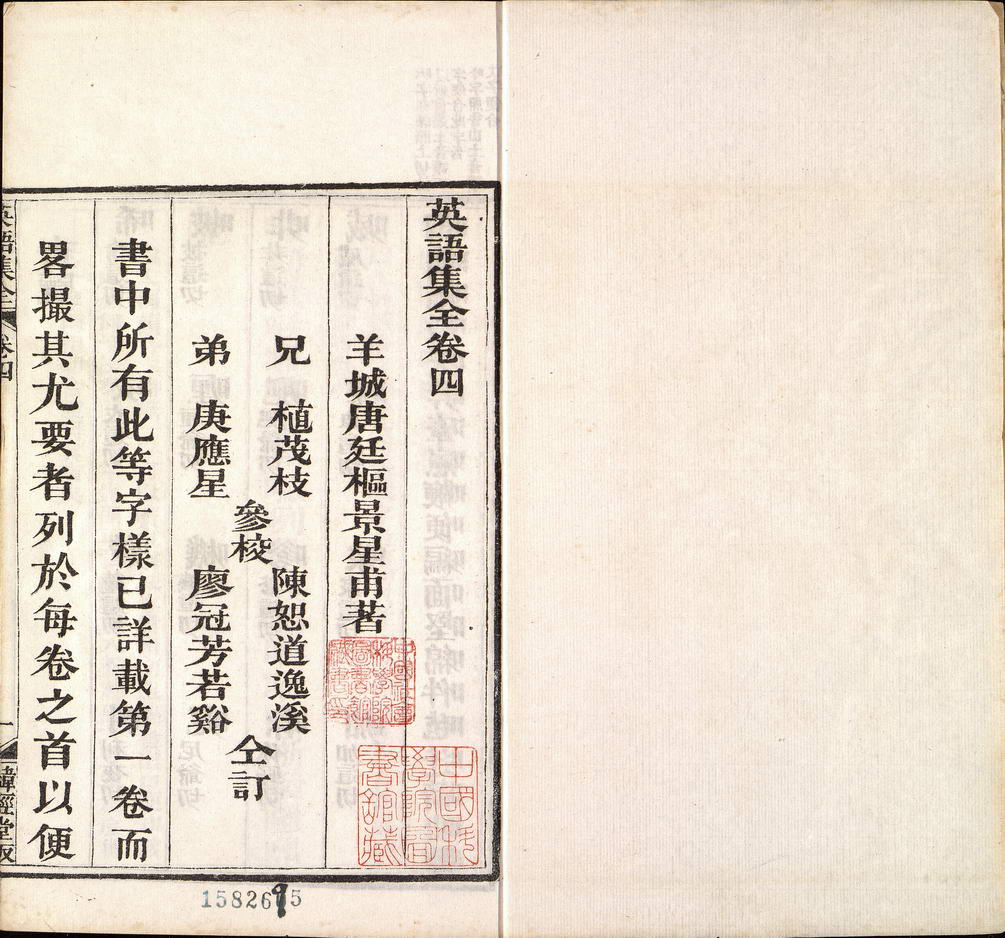 英語集全卷四
羊城唐廷樞景星甫著
兄 植茂枝 參校 陳恕道逸溪 仝訂
弟 庚應星 廖冠芳若谿
書中所有此等字樣已詳載第一卷而
畧撮其尤要者列於每卷之首以便
英語集全 卷四 一 緯經堂板
中國科學院圖書館藏
1582675